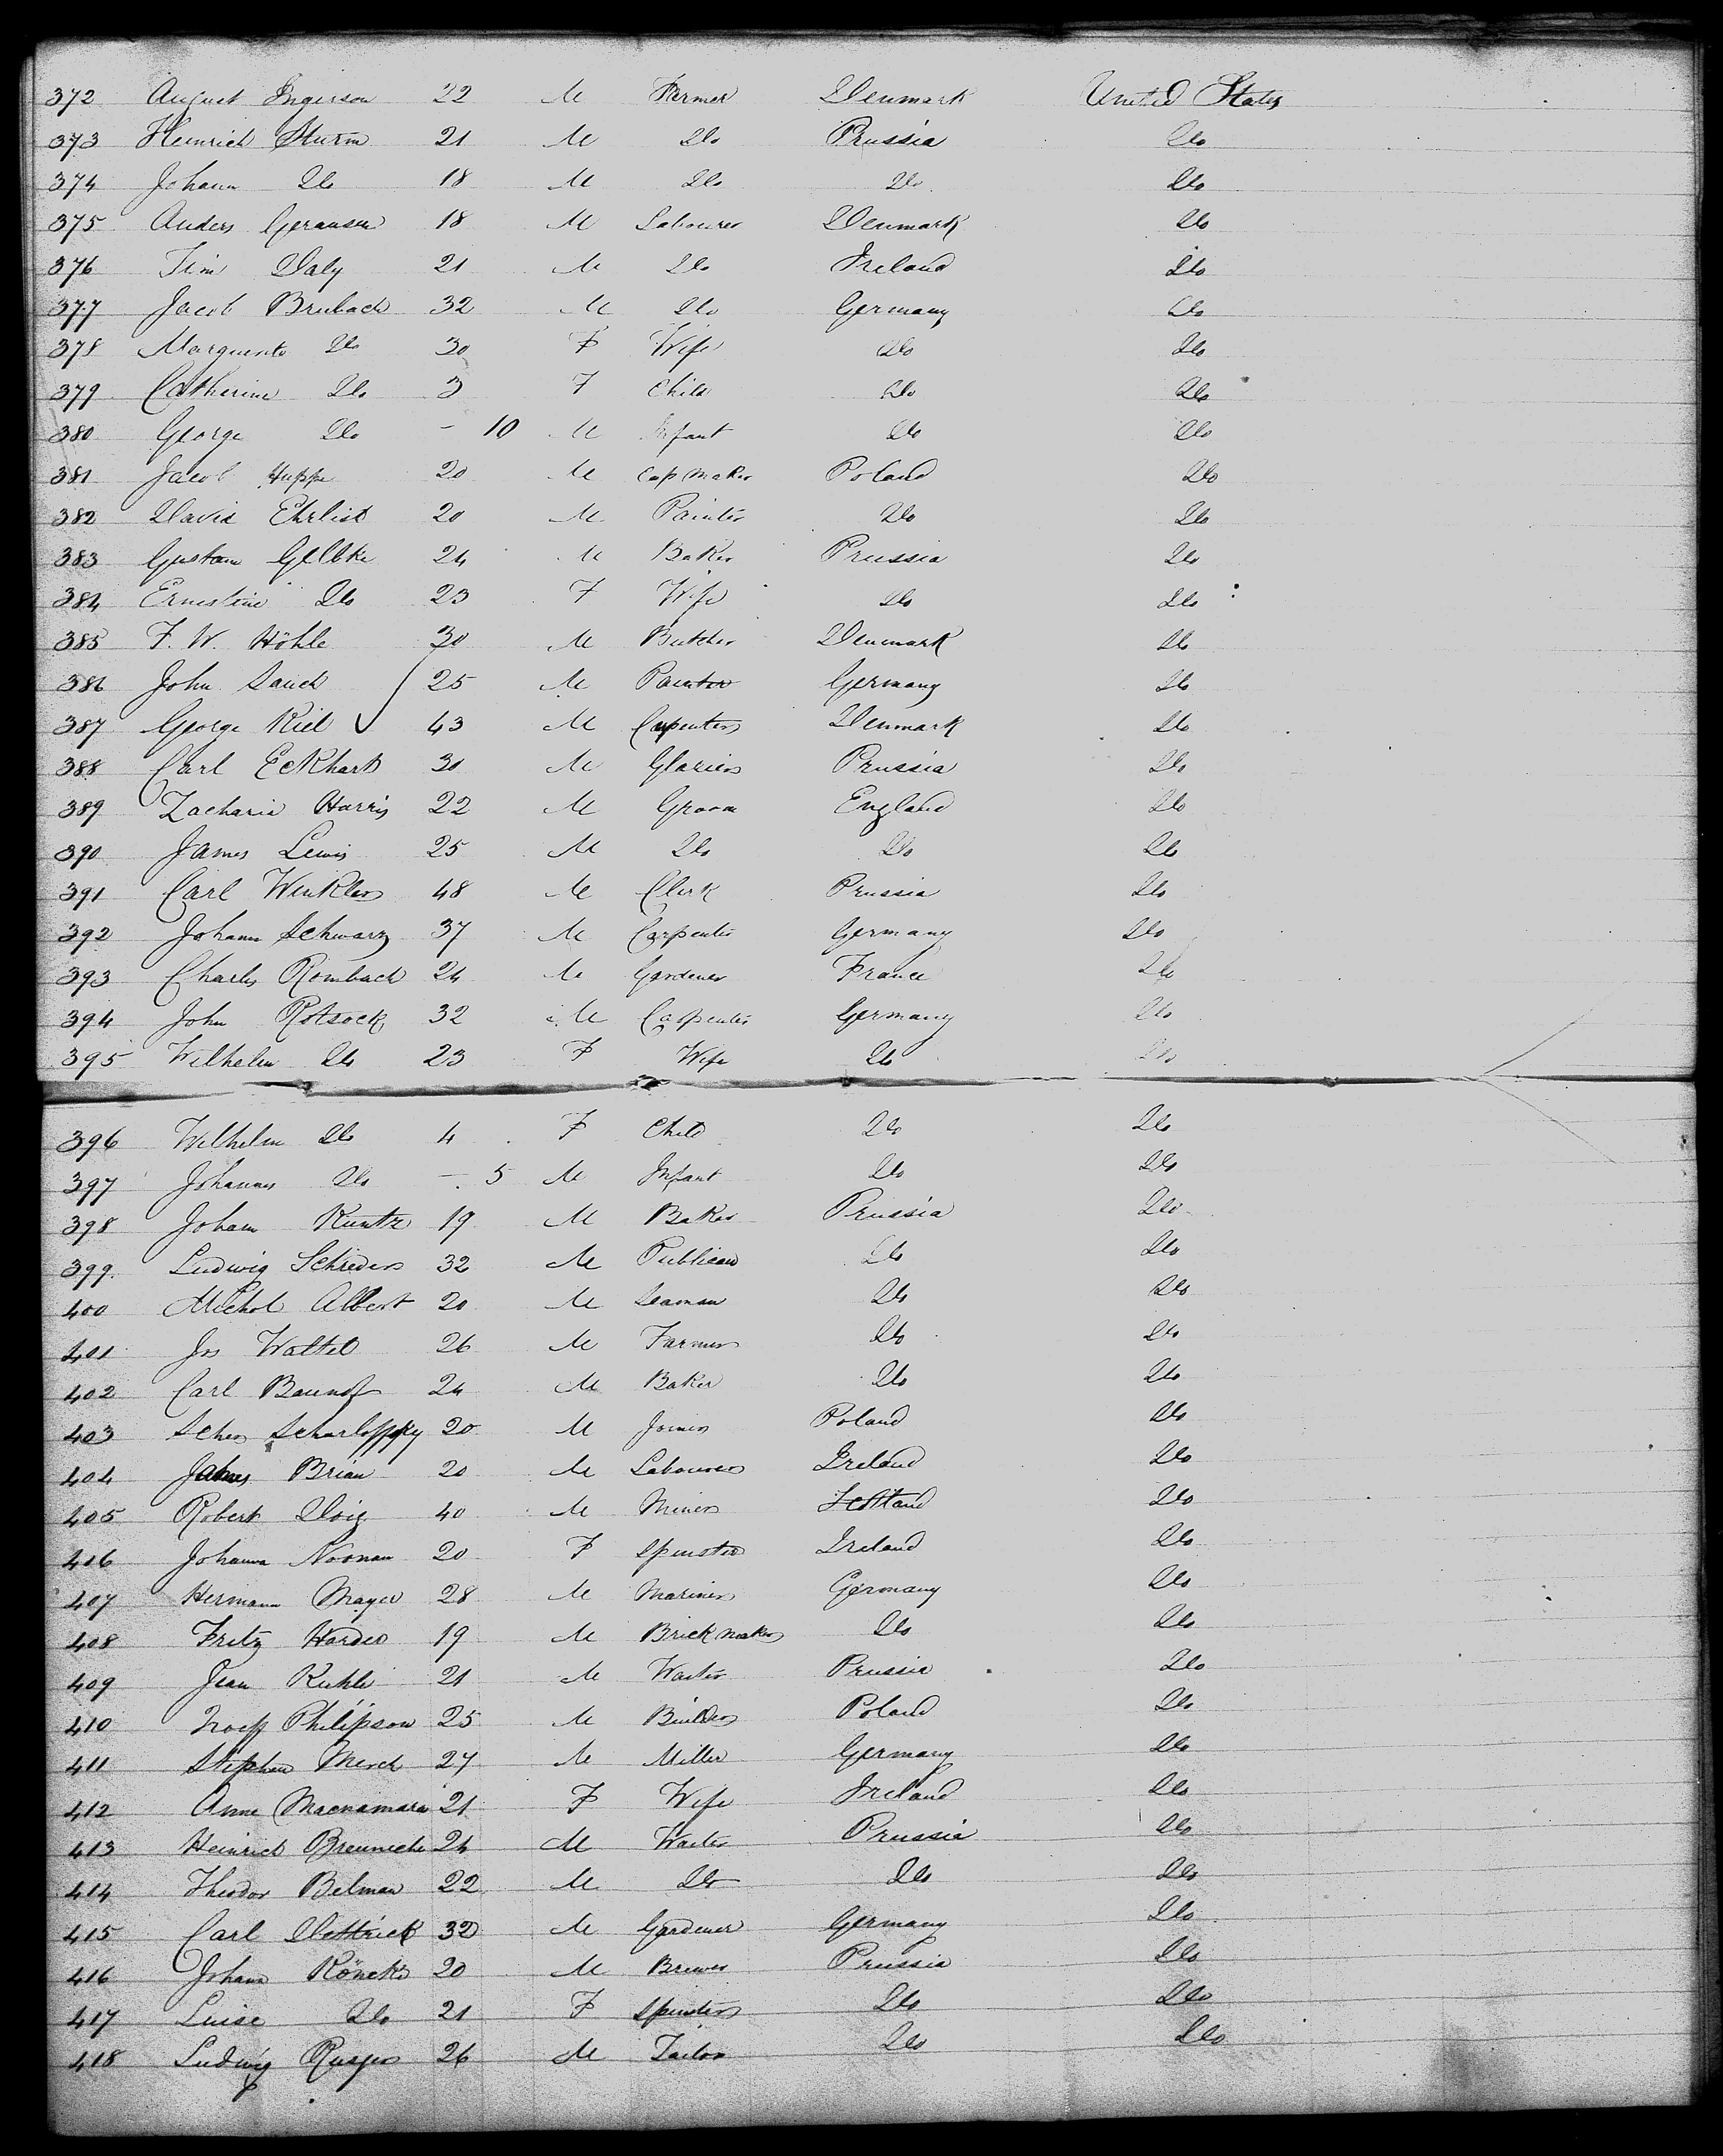 372 August Ingerson 22 M Farmer Denmark United States
373 Heinrich Sturm 21 M Do Prussia Do
374 Johann Do 18 M Do Do Do
375 Anders Goransen 18 M Labourer Denmark Do
376 Tim Daly 21 M Do Ireland Do
377 Jacob Brubach 32 M Do Germany Do
378 Do 30 F Wife Do Do
379 Catherine Do 3 F Child Do Do
380 George Do - 10 M Infant Do Do
381 Jacob Huppe 20 M Cap Maker Poland Do
382 David Ehrlich 20 M Painter Do Do
383 Gustav 24 M Baker Prussia Do
384 Ernestine Do 23 F Wife Do Do
385 F. W. Höhle 30 M Butcher Denmark Do
386 John Sauch 25 M Painter Germany Do
387 George Kiel 43 M Carpenter Denmark Do
388 Carl Eckhart M Glazier Prussia Do
389 Zacharia Harris 22 M Groom England Do
390 James Lewis 25 M Do Do Do
391 Carl Winkler 48 M Clerk Prussia Do
392 Johann Schwarz 37 M Carpenter Germany Do
393 Charles Rombach 24 M Gardener France Do
394 John Rotsock 32 M Carpenter Germany Do
395 Wilhelm Do 23 F Wife Do Do
396 Wilhelm Do 4 F Child Do Do
397 Johannes Do - 5 M Infant Do Do
398 Johann Kuntz 19 M Baker Prussia Do
399 Ludwig Schreder 32 M Publican Do Do
400 Michol Albert 20 M Seaman Do Do
401 Jos Wattel 26 M Farmer Do Do
402 Carl 24 M Baker Do Do
403 20 M Joiner Poland Do
404 James Brian 20 M Labourer Ireland Do
405 Robert Doig 40 M Miner Scotland Do
406 Johanna Noonan 20 F Spinster Ireland Do
407 Hermann Mayer 28 M Mariner Germany Do
408 Fritz Harder 19 M Brick maker Do Do
409 Jean Kuhle 21 M Waiter Prussia Do
410 Philipson 25 M Poland Do
411 Stephan Merck 27 M Miller Germany Do
412 Anne Macnamara 21 F Wife Ireland Do
413 Heinrich 24 M Waiter Prussia Do
414 Theodor Belman 22 M Do Do Do
415 Carl Dettrick 32 M Gardener Germany Do
416 Johann Röncke 20 M Brewer Prussia Do
417 Luise Do 21 F Spinster Do Do
418 Ludwig 26 M Tailor Do Do